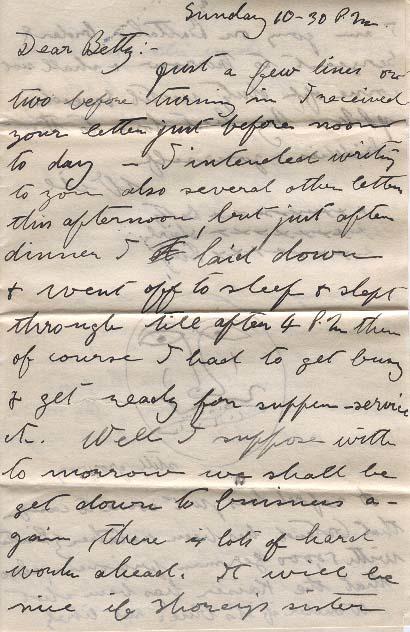 Sunday 10-30 P.M.
Dear Betty:-
Just a few lines or
two before turning in I received
your letter just before noon
to day - I intended writing
to you also several other letters
this afternoon, but just after
dinner I laid down
& went off to sleep & slept
through till after 4 P.M then
of course I had to get busy
& get ready for supper - service
etc. Well I suppose with
to morrow we shall be
get down to buisness a-
gain, there is lots of hard
work ahead. It will be
nice if sister